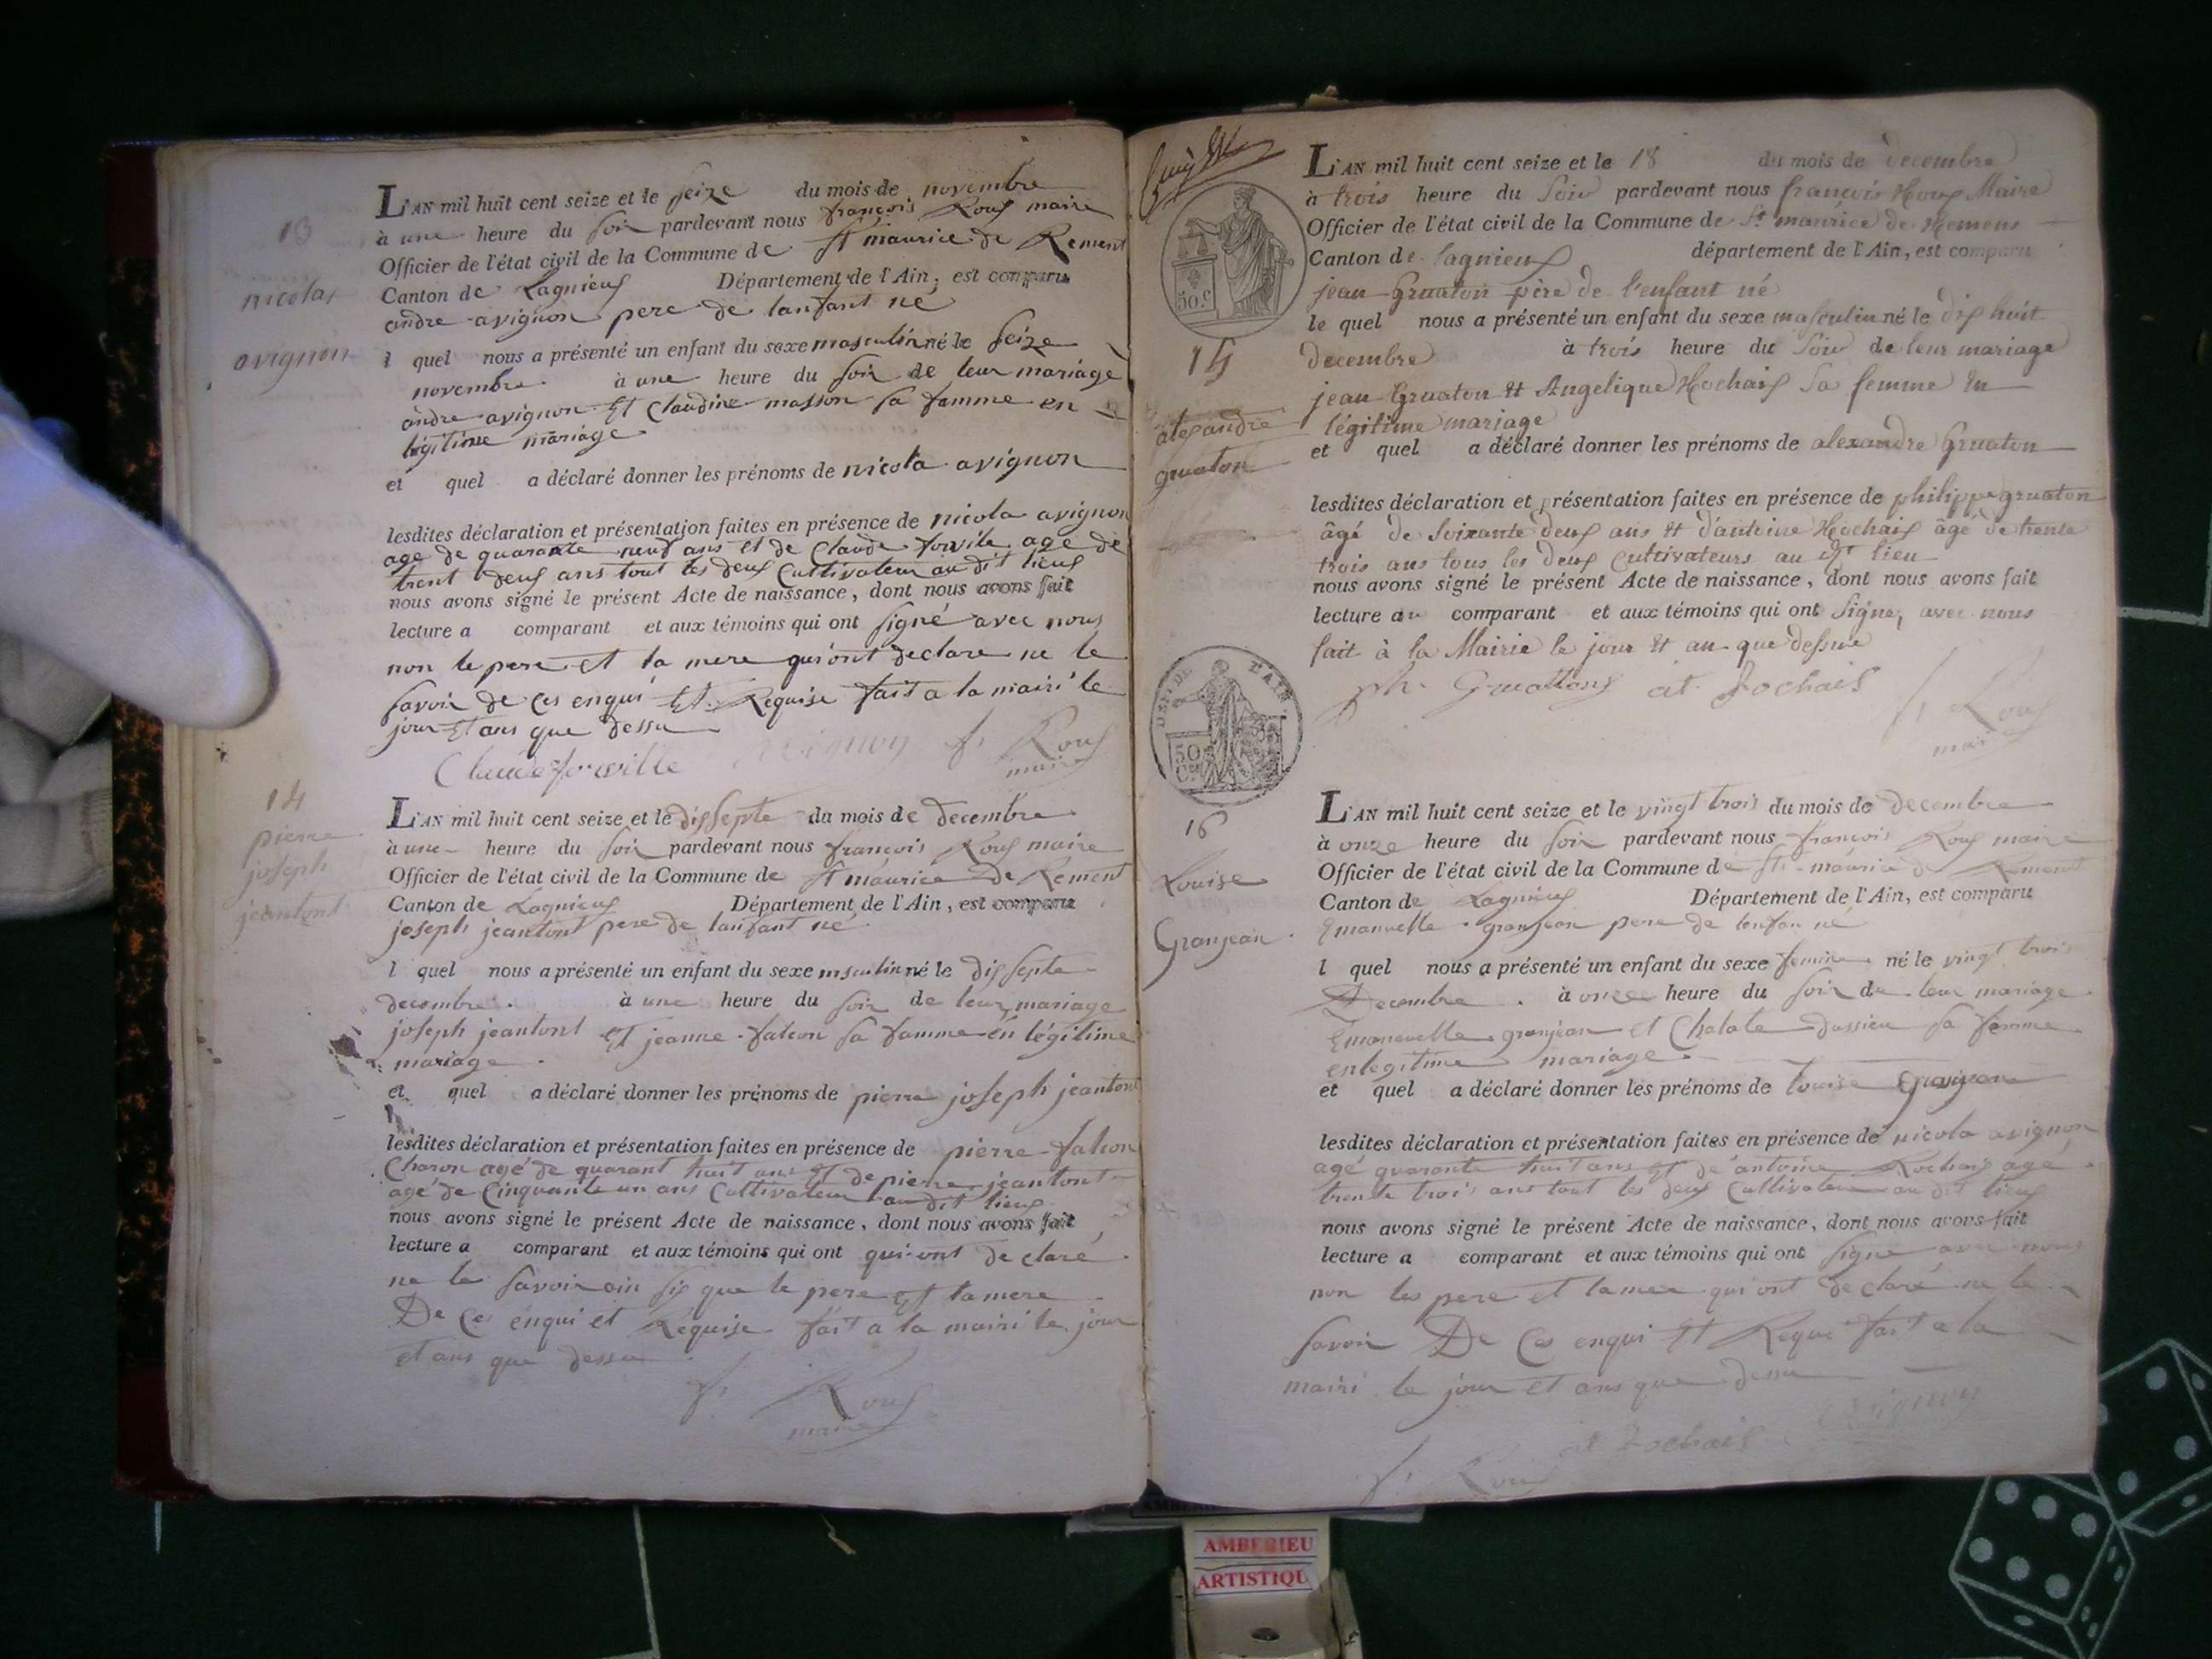 13
nicolas
avignon
L'AN mil huit cent seize et le seize du mois de novembre
à une heure du soir pardevant nous françois Roux maire
Officier de l'état civil de la Commune de St maurice de Rement
Canton de Lagnieux Département de l'Ain, est comparu
andre avignon pere de lanfant né
l quel nous a présenté un enfant du sexe masculin né le seize
novembre à une heure du soir de leur mariage
andre avignon Et Claudine masson sa famme en
légitime mariage
et quel a déclaré donner les prénoms de nicola avignon
lesdites déclaration et présentation faites en présence de nicola avignon
age de quarante neuf ans et de Claude forvile age de
trent deux ans tout les deux Cultivateur au dit lieux
nous avons signé le présent Acte de naissance, dont nous avons fait
lecture a comparant et aux témoins qui ont signé avec nous
non le pere et la mere qui ont declare ne le
savoir de ces enqui Et Requise fait a la mairi le
jour Et ans que dessu
Claude forville avignon f. Roux
maire
14
pierre
joseph
jeantont
L'AN mil huit cent seize et le dissepte du mois de decembre
à une heure du soir pardevant nous françois Roux maire
Officier de l'état civil de la Commune de St maurice De Rement
Canton de Lagnieux Département de l'Ain, est comparu
joseph jeantont pere de lanfant né
l quel nous a présenté un enfant du sexe msculin né le dissepte
decembre. à une heure du soir de leur mariage
joseph jeantont Et jeanne falcon sa famme en légitime
mariage.
et quel a déclaré donner les prénoms de pierre joseph jeantont
lesdites déclaration et présentation faites en présence de pierre falcon
Charon agé de quarant huit ans Et de pierre jeantont
agé de Cinquante un ans Cultivateur au dit lieux
nous avons signé le présent Acte de naissance, dont nous avons fait
lecture a comparant et aux témoins qui ont qui ont declaré
ne le savoir ain sis que le pere Et la mere
De ces énqui et Requise fait a la mairi le jour
et ans que dessu
f. Roux
maire
50.c
15
alexandre
gruaton
L'AN mil huit cent seize et le 18 du mois de decembre
à trois heure du Soir pardevant nous françois Roux Maire
Officier de l'état civil de la Commune de St maurice de Remens
Canton de lagnieux département de l'Ain, est comparu
jean Gruaton père de l'enfant né
le quel nous a présenté un enfant du sexe masculin né le dix huit
decembre à trois heure du Soir de leur mariage
jean Gruaton et Angelique Rochaix Sa femme En
légitime mariage
et quel a déclaré donner les prénoms de alexandre Gruaton
lesdites déclaration et présentation faites en présence de philippe gruaton
âgé de Soixante deux ans et d'antoine Rochaix âgé de trente
trois ans tous les deux Cultivateurs au dt lieu
nous avons signé le présent Acte de naissance, dont nous avons fait
lecture au comparant et aux témoins qui ont Signe, avec nous
fait à la Mairie le jour et an que dessus
ph. Gruattons at Rochais f. Roux
mair
DEPT DE L'AIN.
50
Cs
16
Louise
Granjean.
L'AN mil huit cent seize et le vingt trois du mois de decembre
à onze heure du soir pardevant nous françois Roux maire
Officier de l'état civil de la Commune de St maurice de Rement
Canton de Lagnieux Département de l'Ain, est comparu
Emanuelle granjean pere de lenfan né
l quel nous a présenté un enfant du sexe femine né le vingt trois
Decembre. à onze heure du soir de leur mariage
Emanuelle granjean et Chalote dussieu sa famme
en legitime mariage.
et quel a déclaré donner les prénoms de Louise granjean
lesdites déclaration et présentation faites en présence de nicola avignon
agé quarante huit ans Et de antoine Rochaix agé
trente trois ans tout les deux Cultivateur au dit lieux
nous avons signé le présent Acte de naissance, dont nous avons fait
lecture a comparant et aux témoins qui ont signe avec nous
non les pere et la mere qui ont declaré ne le
savoir De Ces enqui Et Requi fait a la
mairi le jour et ans que dessu
f. Roux at Rochais avignon
AMBERIEU
ARTISTIQU